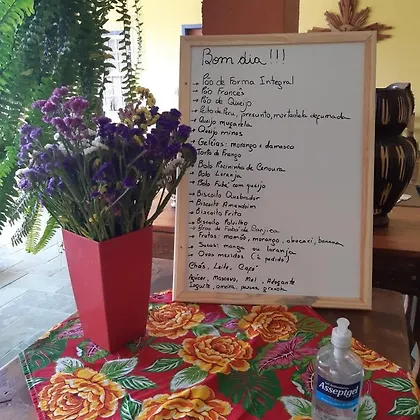 Bom dia!!!
→ Pão de Forma Integral
→ Pão Francês
→ Pão de Queijo
→ Peito de Peru, presunto, mortadela defumada
→ Queijo muçarela
→ Queijo minas
→ Geléias: morango e damasco
→ Torta de Frango
→ Bolo Rocinnha de Cenoura
→ Bolo Laranja
→ Bolo Fubá com queijo
→ Biscoito Quebrador
→ Biscoito Amendoim
→ Biscoito Frito
→ Biscoito Polvilho
→ Broa de Fubá de Canjica
→ Frutas: mamão, morango, abacaxi, banana
→ Sucos: manga ou laranja
→ Ovos mexidos (à pedido)
Chás, Leite, Café
Açúcar, Mascavo, Mel, Adoçante
Iogurte, ameixa, passas, granola
Asseptgel